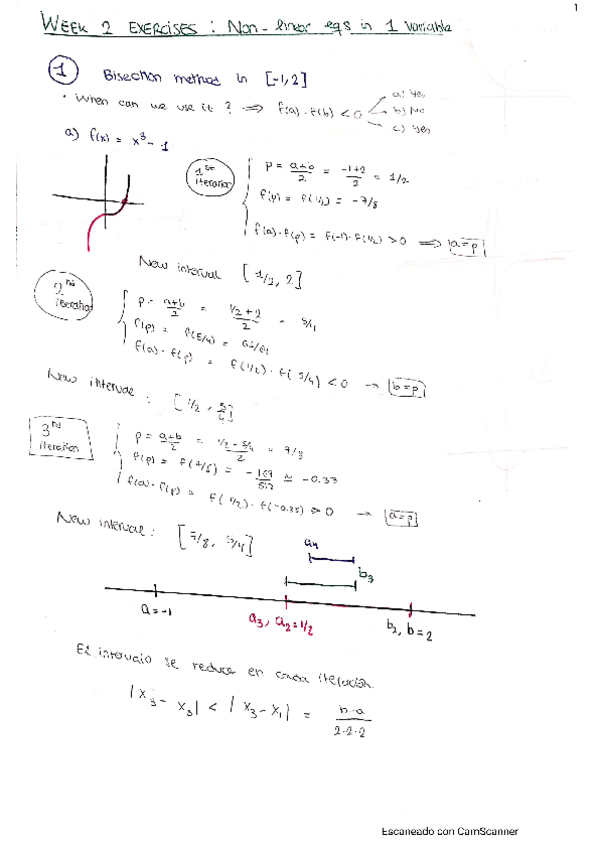 1
WEEK 2 EXERCISES : Non-linear eqs in 1 variable
1 Bisection method in [-1,2]
· When can we use it ? ⟹ f(a)·f(b) < 0
a) Yes
b) No
c) Yes
a) f(x) = x³ - 1
1st iteration
p = a+b/2 = -1+2/2 = 1/2
f(p) = f(1/2) = -7/8
f(a)·f(p) = f(-1)·f(1/2) > 0 ⟹ a=p
New interval [1/2, 2]
2nd iteration
p = a+b/2 = 1/2+2/2 = 5/4
f(p) = f(5/4) = 61/64
f(a)·f(p) = f(1/2)·f(5/4) < 0 → b=p
New interval : [1/2, 5/4]
3rd iteration
p = a+b/2 = 1/2-5/4/2 = 7/8
f(p) = f(7/8) = -169/512 ≃ -0.33
f(a)·f(p) = f(1/2)·f(-0.33) > 0 → a=p
New interval : [7/8, 5/4]
a4
b3
a=-1
a3, a2=1/2
b2, b=2
El intervalo se reduce en cada iteración.
|x3 - x3| < |x3 - x1| = b-a/2·2·2
Escaneado con CamScanner